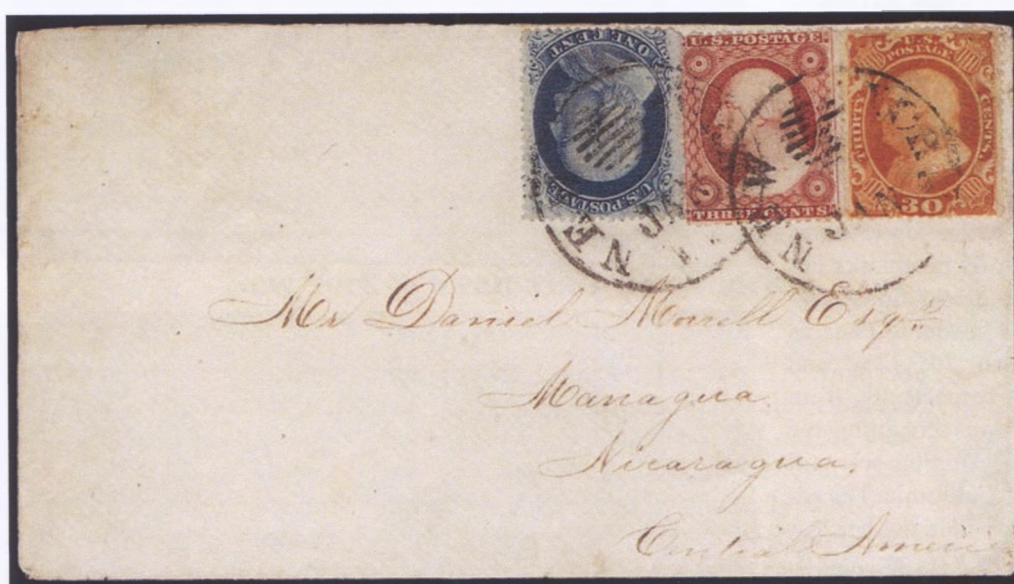 ONE CENT
U.S. POSTAGE
U.S. POSTAGE.
THREE CENTS
U.S.
POSTAGE
THIRTY
CENTS.
30
NE
JA
N
W
YOR
JA
Mr Daniel Morrell Esqr
Managua
Nicaragua.
Central Americ